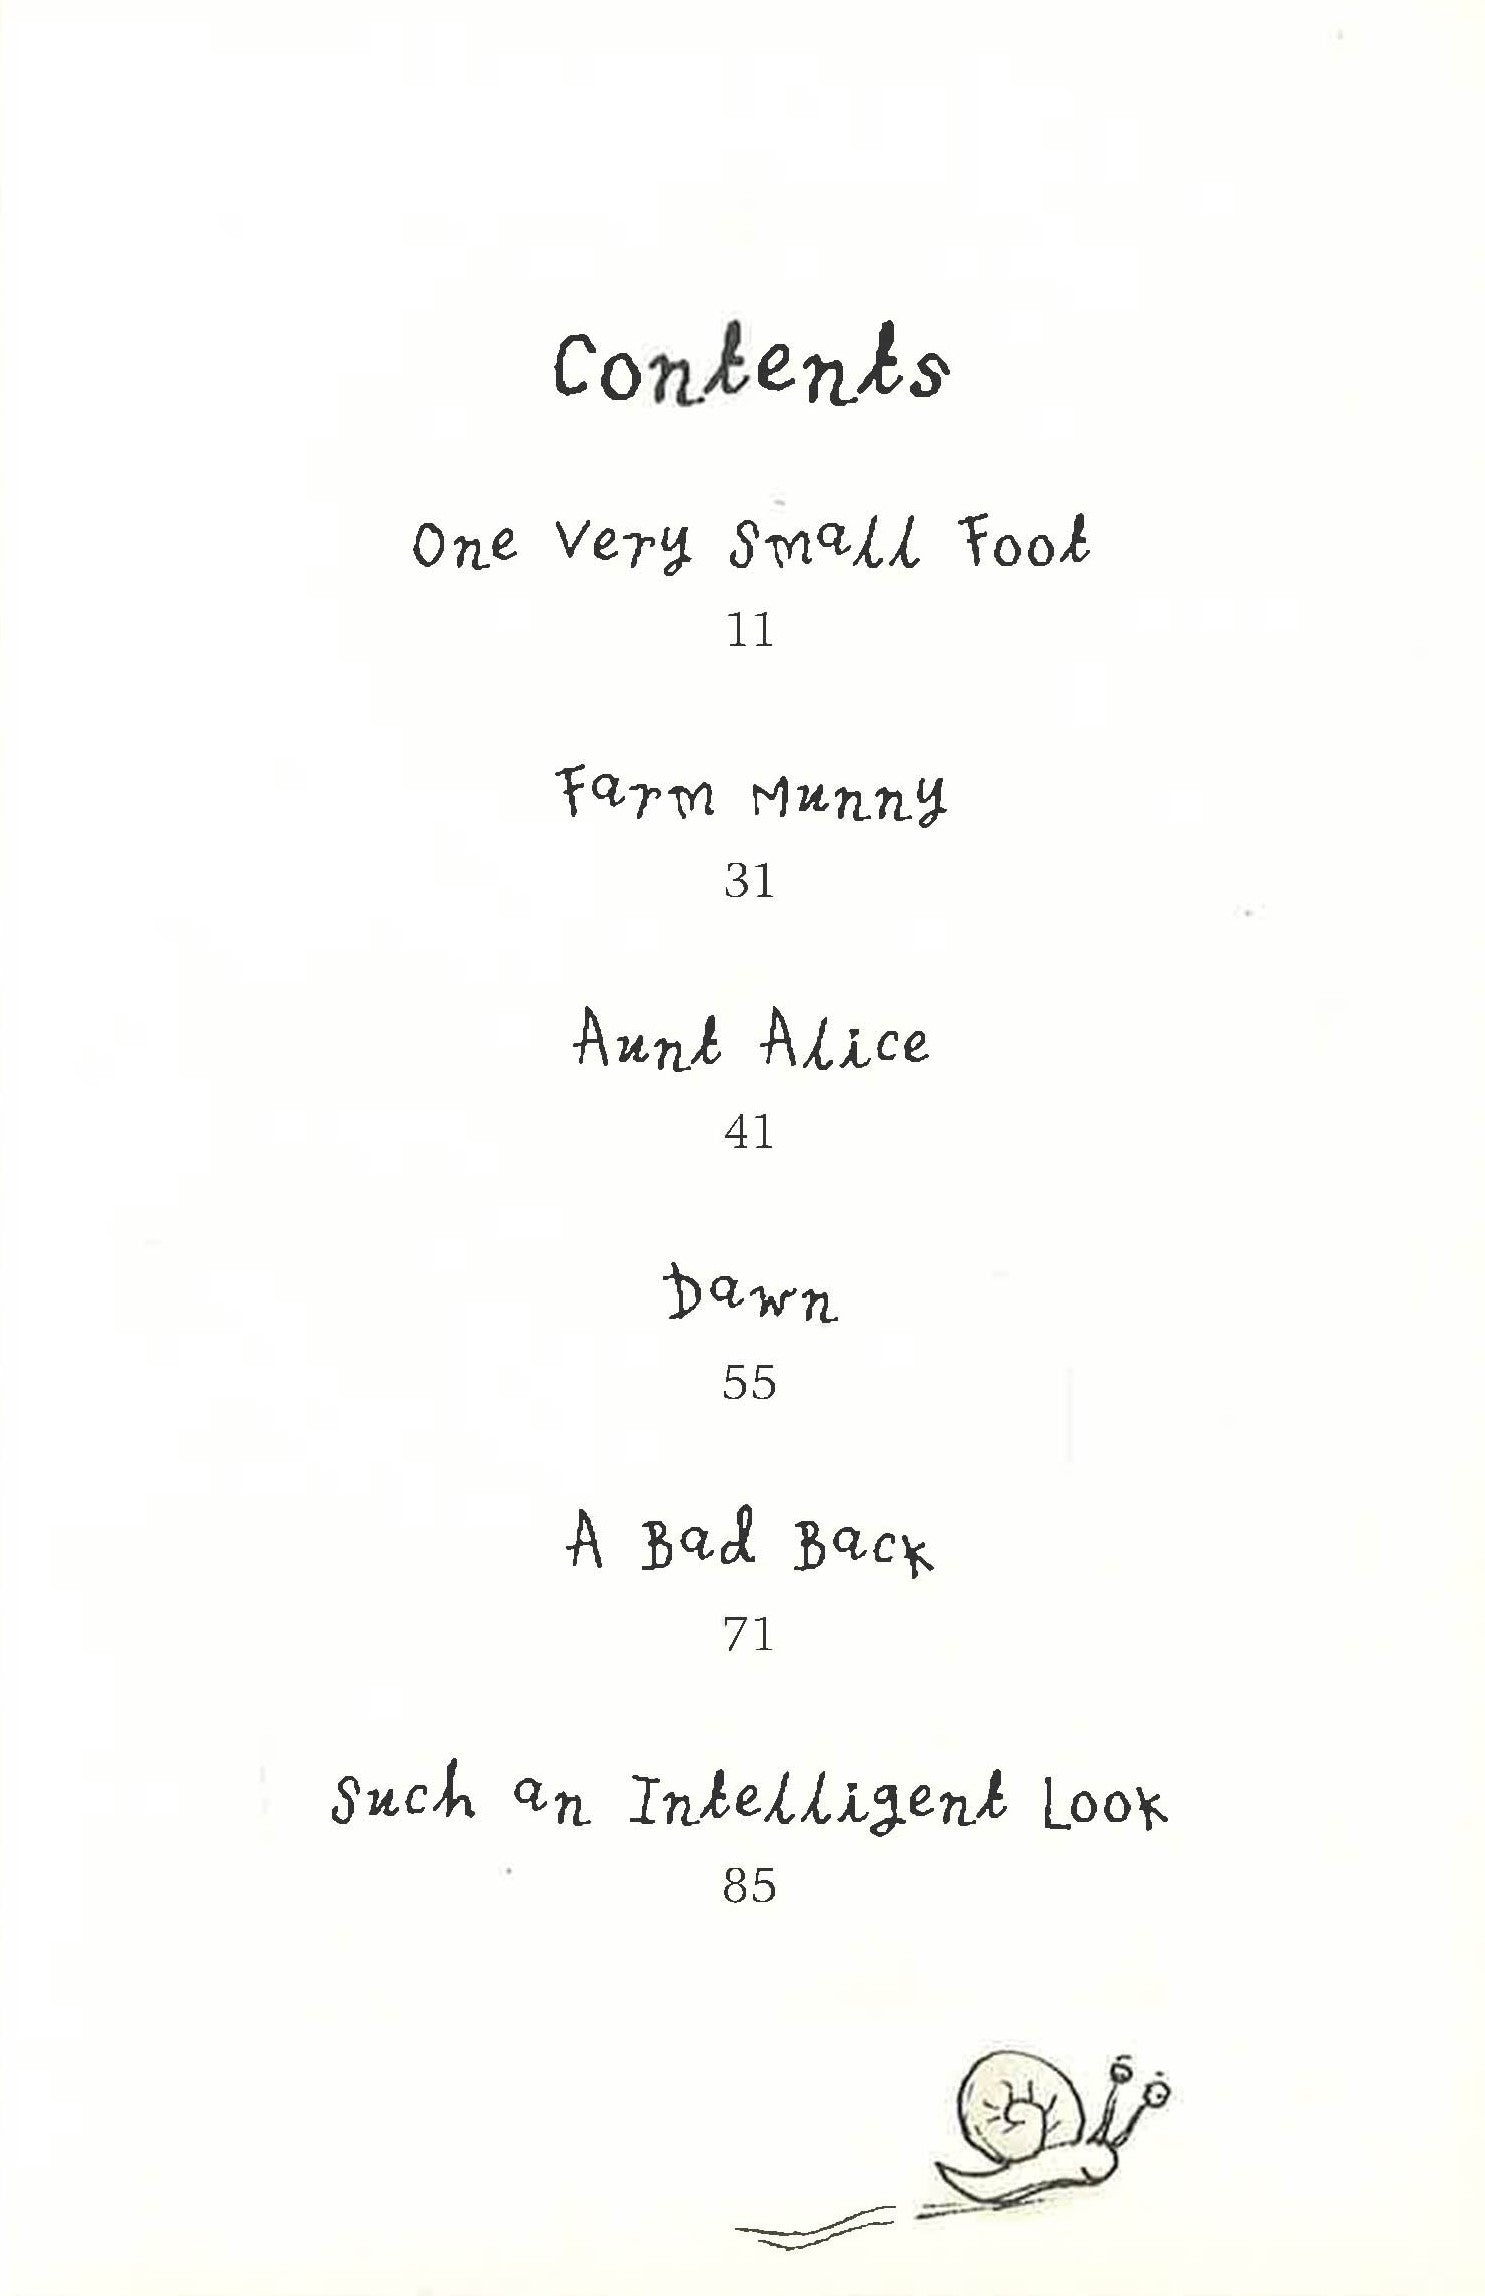 Contents
One Very Small Foot
11
Farm Munny
31
Aunt Alice
41
Dawn
55
A Bad Back
71
Such an Intelligent Look
85